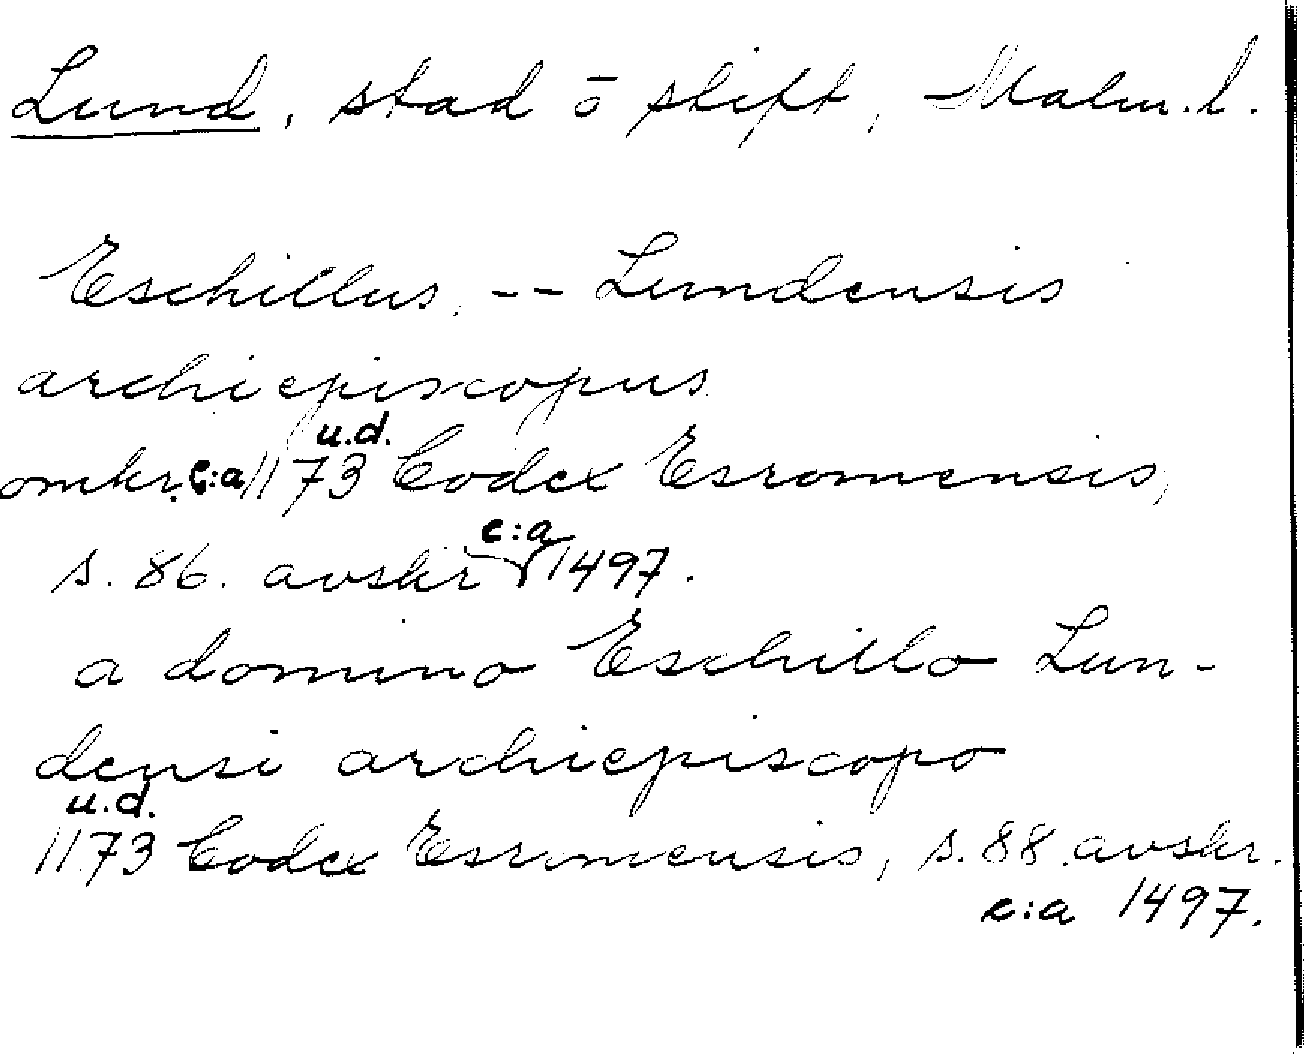 Lund, stad ō stift, Malm. l.
Eschillus, -- Lundensis
archiepiscopus
u.d.
omkr. c:a 1173 Codex Esromensis,
c:a
s. 86. avskr 1497.
a domino Eschillo Lun-
densi archiepiscopo
u.d.
1173 Codex Esromensis, s. 88. avskr.
c:a 1497.